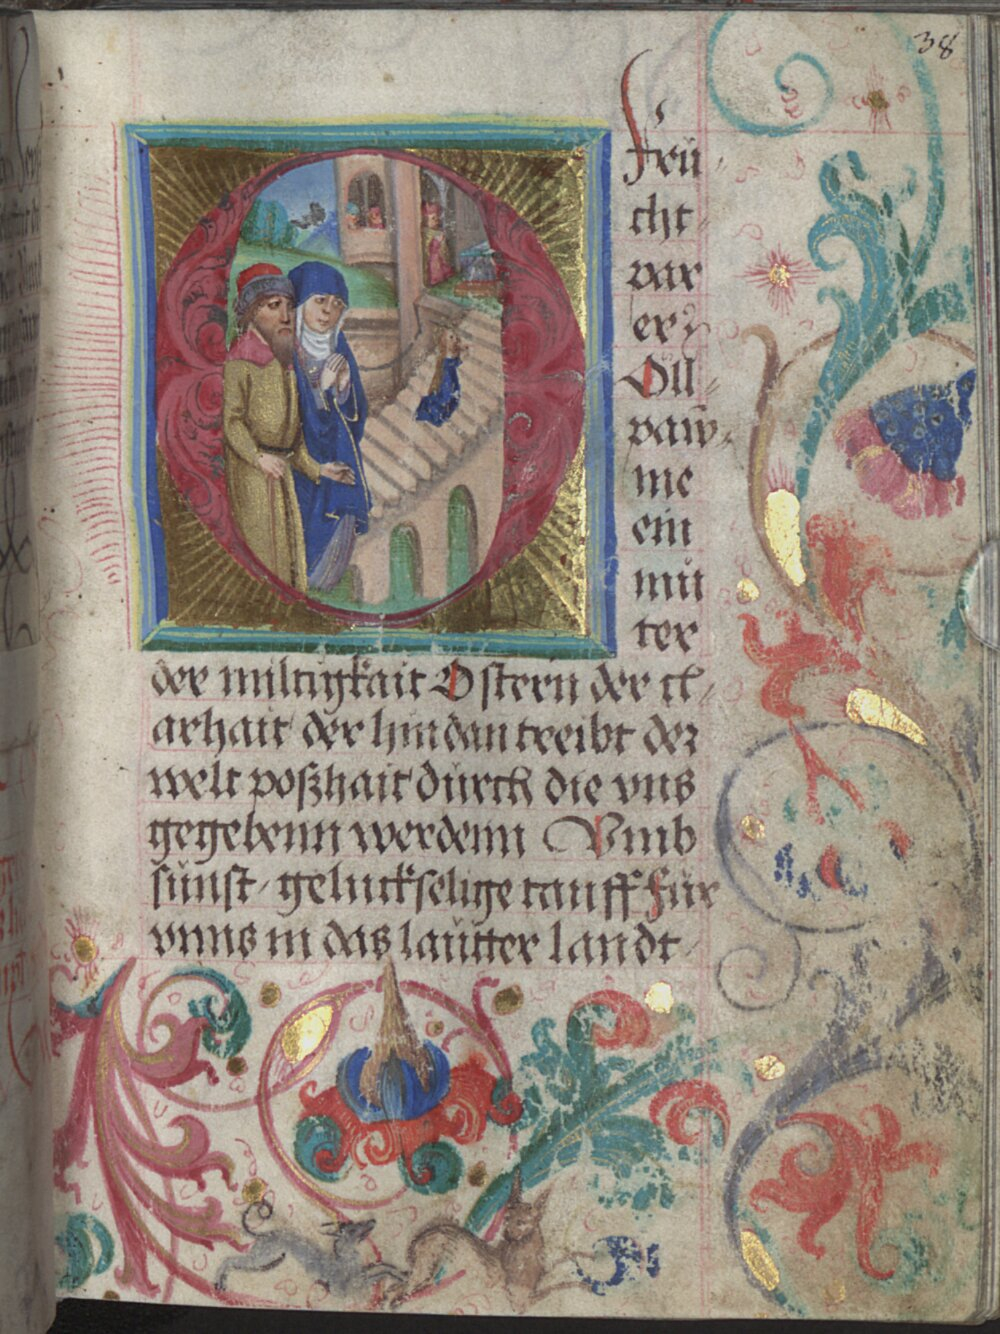 38
O
frü
cht
par
er
Öll
paw̄
me
ein
mũ
ter
der miltigkait Ostern der cl
arhait der hindan treibt der
welt poßhait durch die vns
gegebenn werdenn Vmb
sunst gelückselige tauff für
vnns in das lautter landt